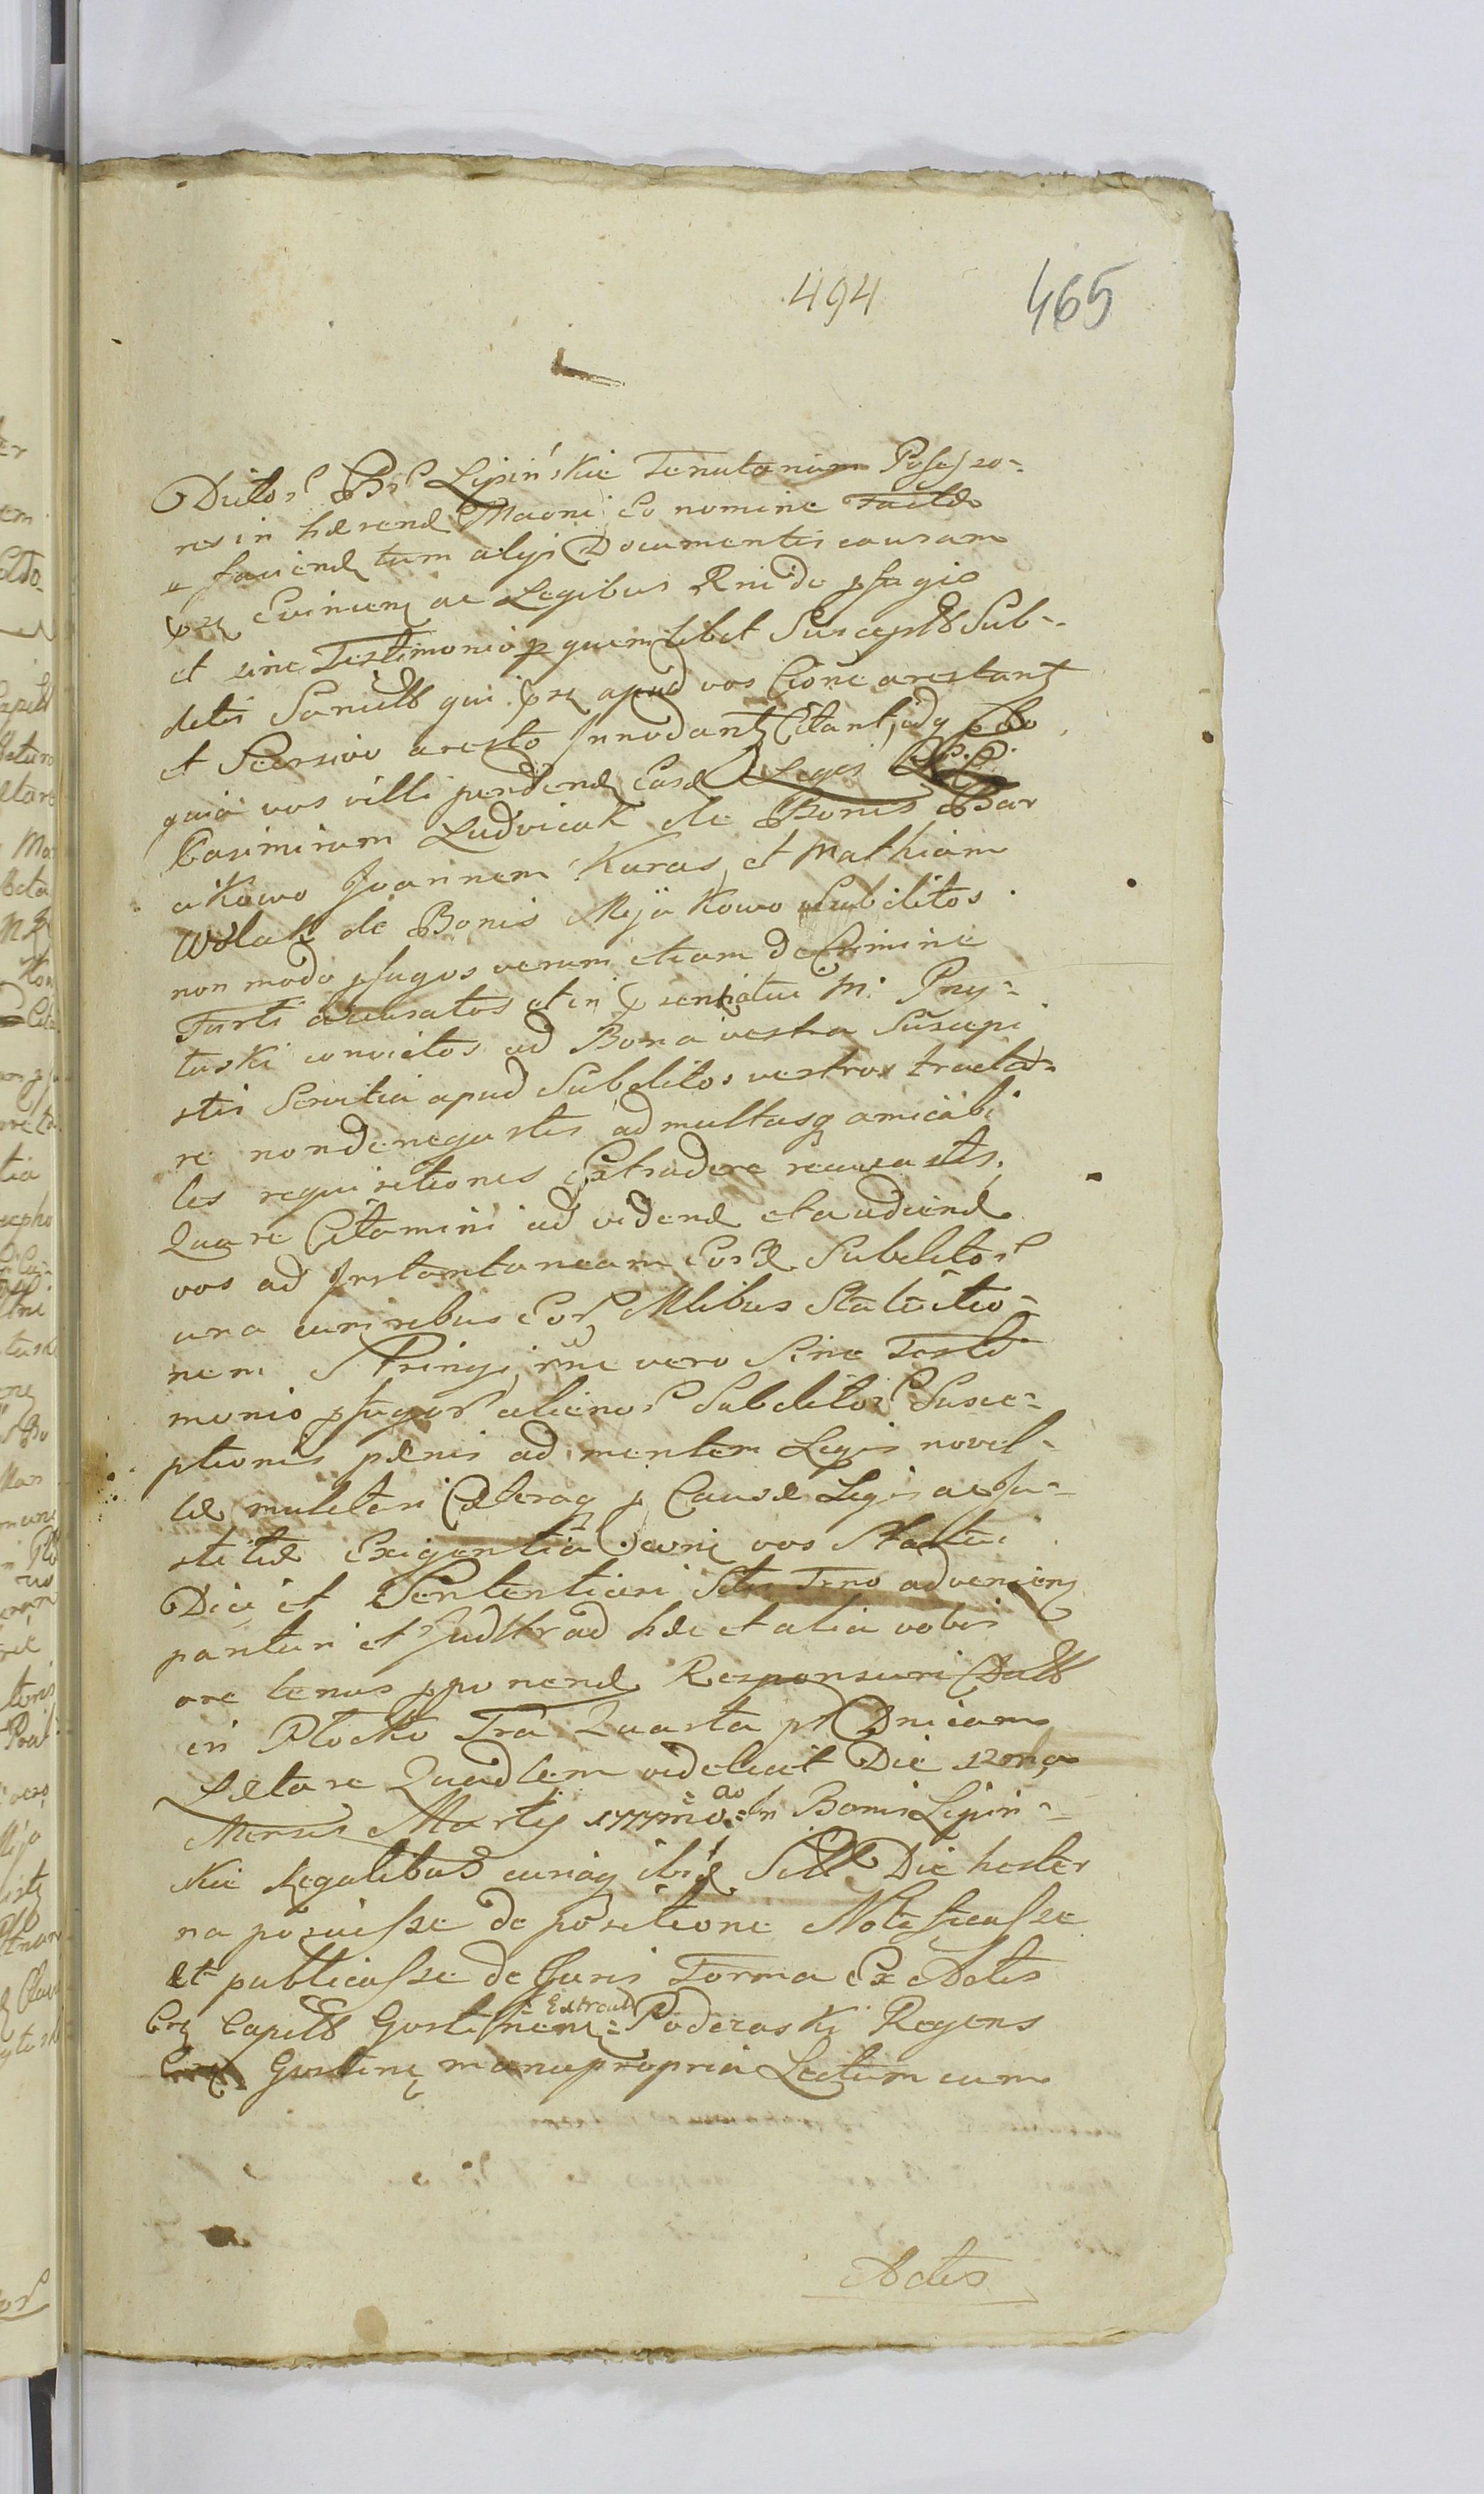 494 465
Ditos Bs Lipińskie Tenutarium Possesso-
res in hærend Maoni Eo nomine Factæ
a faciend tum alys Documentis causam
prz Evincen ac Legibus Rni de pfugis
et sine Testimonio p quemlibet Susceptis Sub-
detis Sancitis qui prz apud vos Cione arestant
et Scersivo aresto Innodant Citant, idq
quia vos villi pendend Casd Leges
Casimirum Ludvicak de Bonis Bar
cikowo Joannem Karas, et Mathiam
Wolak de Bonis Myjakowo Subditos
non modo pfugos verum etiam de Crimine
Furti accusatos et in prsentiatua M: Pny-
tuski convictos ad Bona vestra Suscepi
stis Servitia apud Subditos vestros tracta-
re non denegastis ad multasq amicabi
les requisitiones Extradere recusastis,
Quare Citamini ad vidend et audiend
vos ad Instantaneam Eord Subditos
una cum rebus Eor Mlibus Statuitio-
nem Stringi, inne vero Sine Testi-
monio pfugor alienor Subditor Susce-
ptionis pænis ad mentem Legis novel-
læ mulctari Cæteraq p Causæ Legis ac Ju-
stitiæ Exigentia Decerni vos Statui
Dici et Sententiari Sitis Trno advenien
parituri et Judltr ad hæc et alia vobis
ore tenus pponend Responsuri Datt
in Plocko Fra Quarta pt Dnicam
Lætare Quadlem videlicet Die 12ma
Mensis Martij 1777mo ao: In Bonis Lipin-
skie Regalibus curiaq ibid Sitt Die hester
na posuisse de positione Notificasse
et publicasse de Juris Forma Ex Actis
Crz Capitt Gostinen: Extrad Poderaski Regens
Gostinen manu propria Lectum cum
Actis